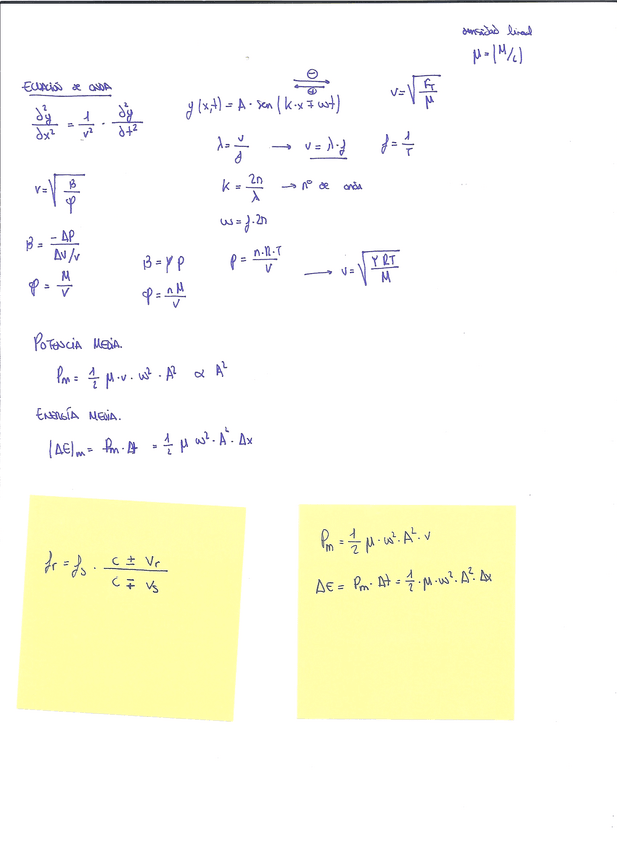 densidad lineal
μ = (M/L)
ECUACIÓN DE ONDA
∂²y/∂x² = 1/v² · ∂²y/∂t²
⊖
⊕
y(x,t) = A · sen (k·x ∓ ωt)
v = √(F_T/μ)
λ = v/f → v = λ·f
f = 1/T
v = √(B/φ)
k = 2π/λ → nº de onda
ω = f·2π
B = -ΔP/(ΔV/V)
B = γP
P = n·R·T/V
→ v = √(γRT/M)
φ = M/V
φ = nM/V
POTENCIA MEDIA.
Pm = 1/2 μ·v·ω²·A² ∝ A²
ENERGÍA MEDIA.
(ΔE)m = Pm·Δt = 1/2 μ ω²·A²·Δx
fr = fs · (c ± vr)/(c ∓ vs)
Pm = 1/2 μ·ω²·A²·v
ΔE = Pm·Δt = 1/2·μ·ω²·A²·Δx